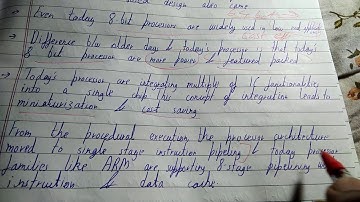 based design also come
→ Even today 8 bit processors are widely used in low end applicat
→ Difference b/w older days & today's processor is that today's
8 bit processor are more power & featured packed
→ Today's processor are integrating multiple of IC functionalities
into a single chip this concept of integration leads to
miniaturization & cost saving
From the procedural execution the processor architecture
moved to single stage instruction pipeling & today processor
families like ARM are supporting 8 stage pipelining with
instruction & data cache